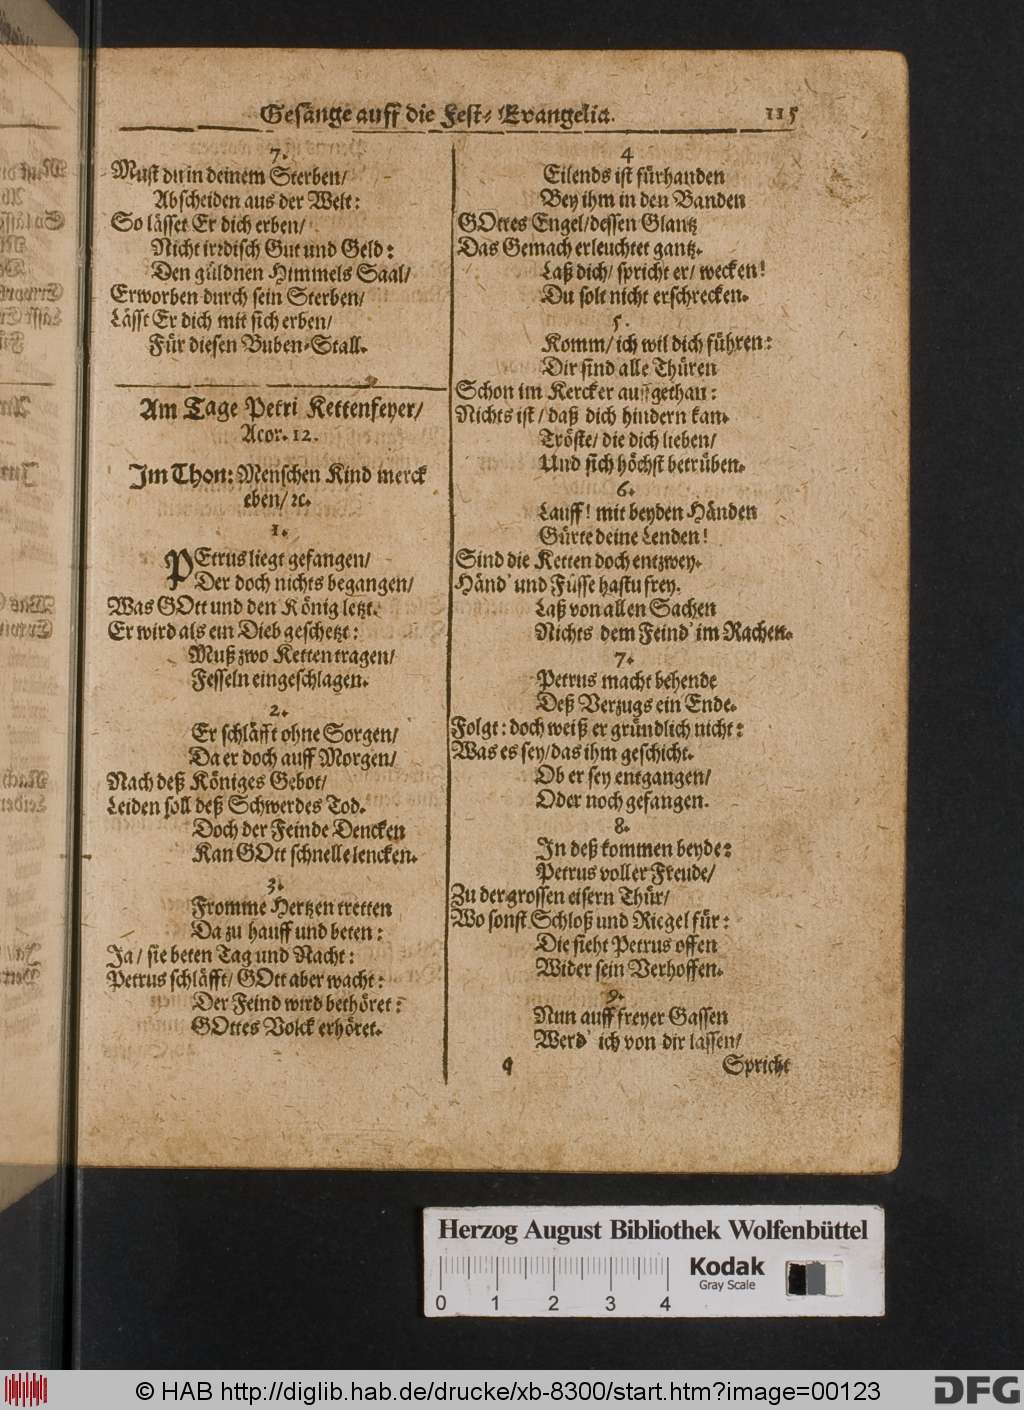 Gesänge auff die Fest-Evangelia.
115
7.
Must du in deinem Sterben/
Abscheiden aus der Welt:
So lässet Er dich erben/
Nicht irrdisch Gut und Geld:
Den güldnen Himmels Saal/
Erworben durch sein Sterben/
Lässt Er dich mit sich erben/
Für diesen Buben-Stall.
Am Tage Petri Kettenfeyer/
Actor. 12.
Im Thon: Menschen Kind merck
eben/ ꝛc.
1.
PEtrus liegt gefangen/
Der doch nichts begangen/
Was GOtt und den König letzt.
Er wird als ein Dieb geschetzt:
Muß zwo Ketten tragen/
Fesseln eingeschlagen.
2.
Er schläfft ohne Sorgen/
Da er doch auff Morgen/
Nach deß Königes Gebot/
Leiden soll deß Schwerdes Tod.
Doch der Feinde Dencken
Kan GOtt schnelle lencken.
3.
Fromme Hertzen tretten
Da zu hauff und beten:
Ja/ sie beten Tag und Nacht:
Petrus schläfft/ GOtt aber wacht:
Der Feind wird bethöret:
GOttes Volck erhöret.
4
Eilends ist fürhanden
Bey ihm in den Banden
GOttes Engel/dessen Glantz
Das Gemach erleuchtet gantz.
Laß dich/ spricht er/ wecken!
Du solt nicht erschrecken.
5.
Komm/ ich wil dich führen:
Dir sind alle Thüren
Schon im Kercker auffgethan:
Nichts ist/ daß dich hindern kan.
Tröste/ die dich lieben/
Und sich höchst betrüben.
6.
Lauff! mit beyden Händen
Gürte deine Lenden!
Sind die Ketten doch entzwey.
Händ' und Füsse hastu frey.
Laß von allen Sachen
Nichts dem Feind' im Rachen.
7.
Petrus macht behende
Deß Verzugs ein Ende.
Folgt: doch weiß er gründlich nicht:
Was es sey/das ihm geschicht.
Ob er sey entgangen/
Oder noch gefangen.
8.
In deß kommen beyde:
Petrus voller Freude/
Zu der grossen eisern Thür/
Wo sonst Schloß und Riegel für:
Die sieht Petrus offen
Wider sein Verhoffen.
9.
Nun auff freyer Gassen
Werd' ich von dir lassen/
q
Spricht
Herzog August Bibliothek Wolfenbüttel
Kodak
Gray Scale
0 1 2 3 4
© HAB http://diglib.hab.de/drucke/xb-8300/start.htm?image=00123
DFG